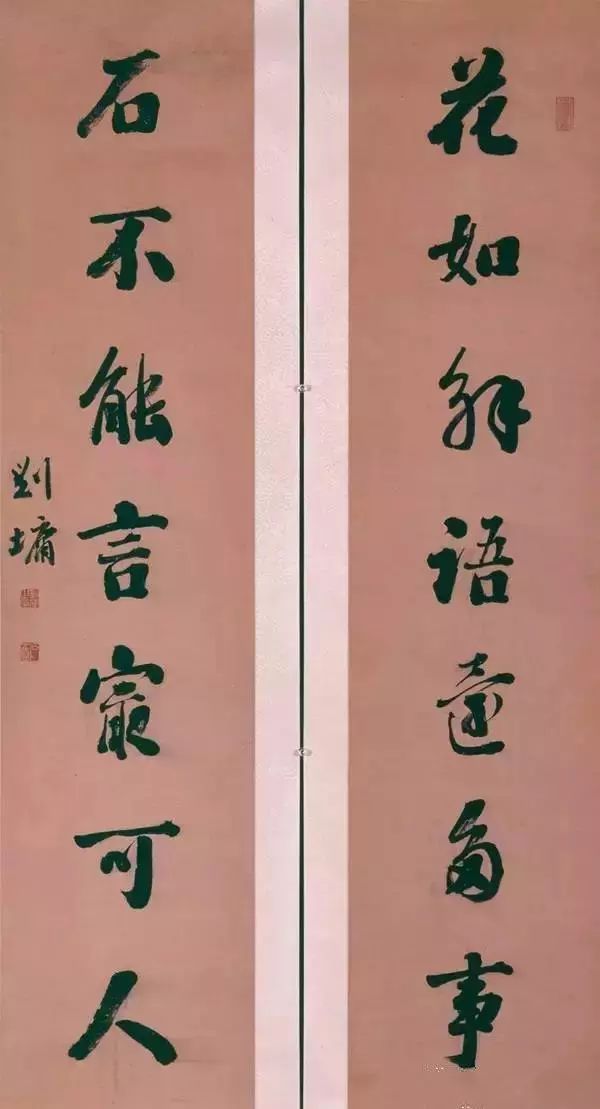 花如解語還多事
石不能言最可人
劉墉